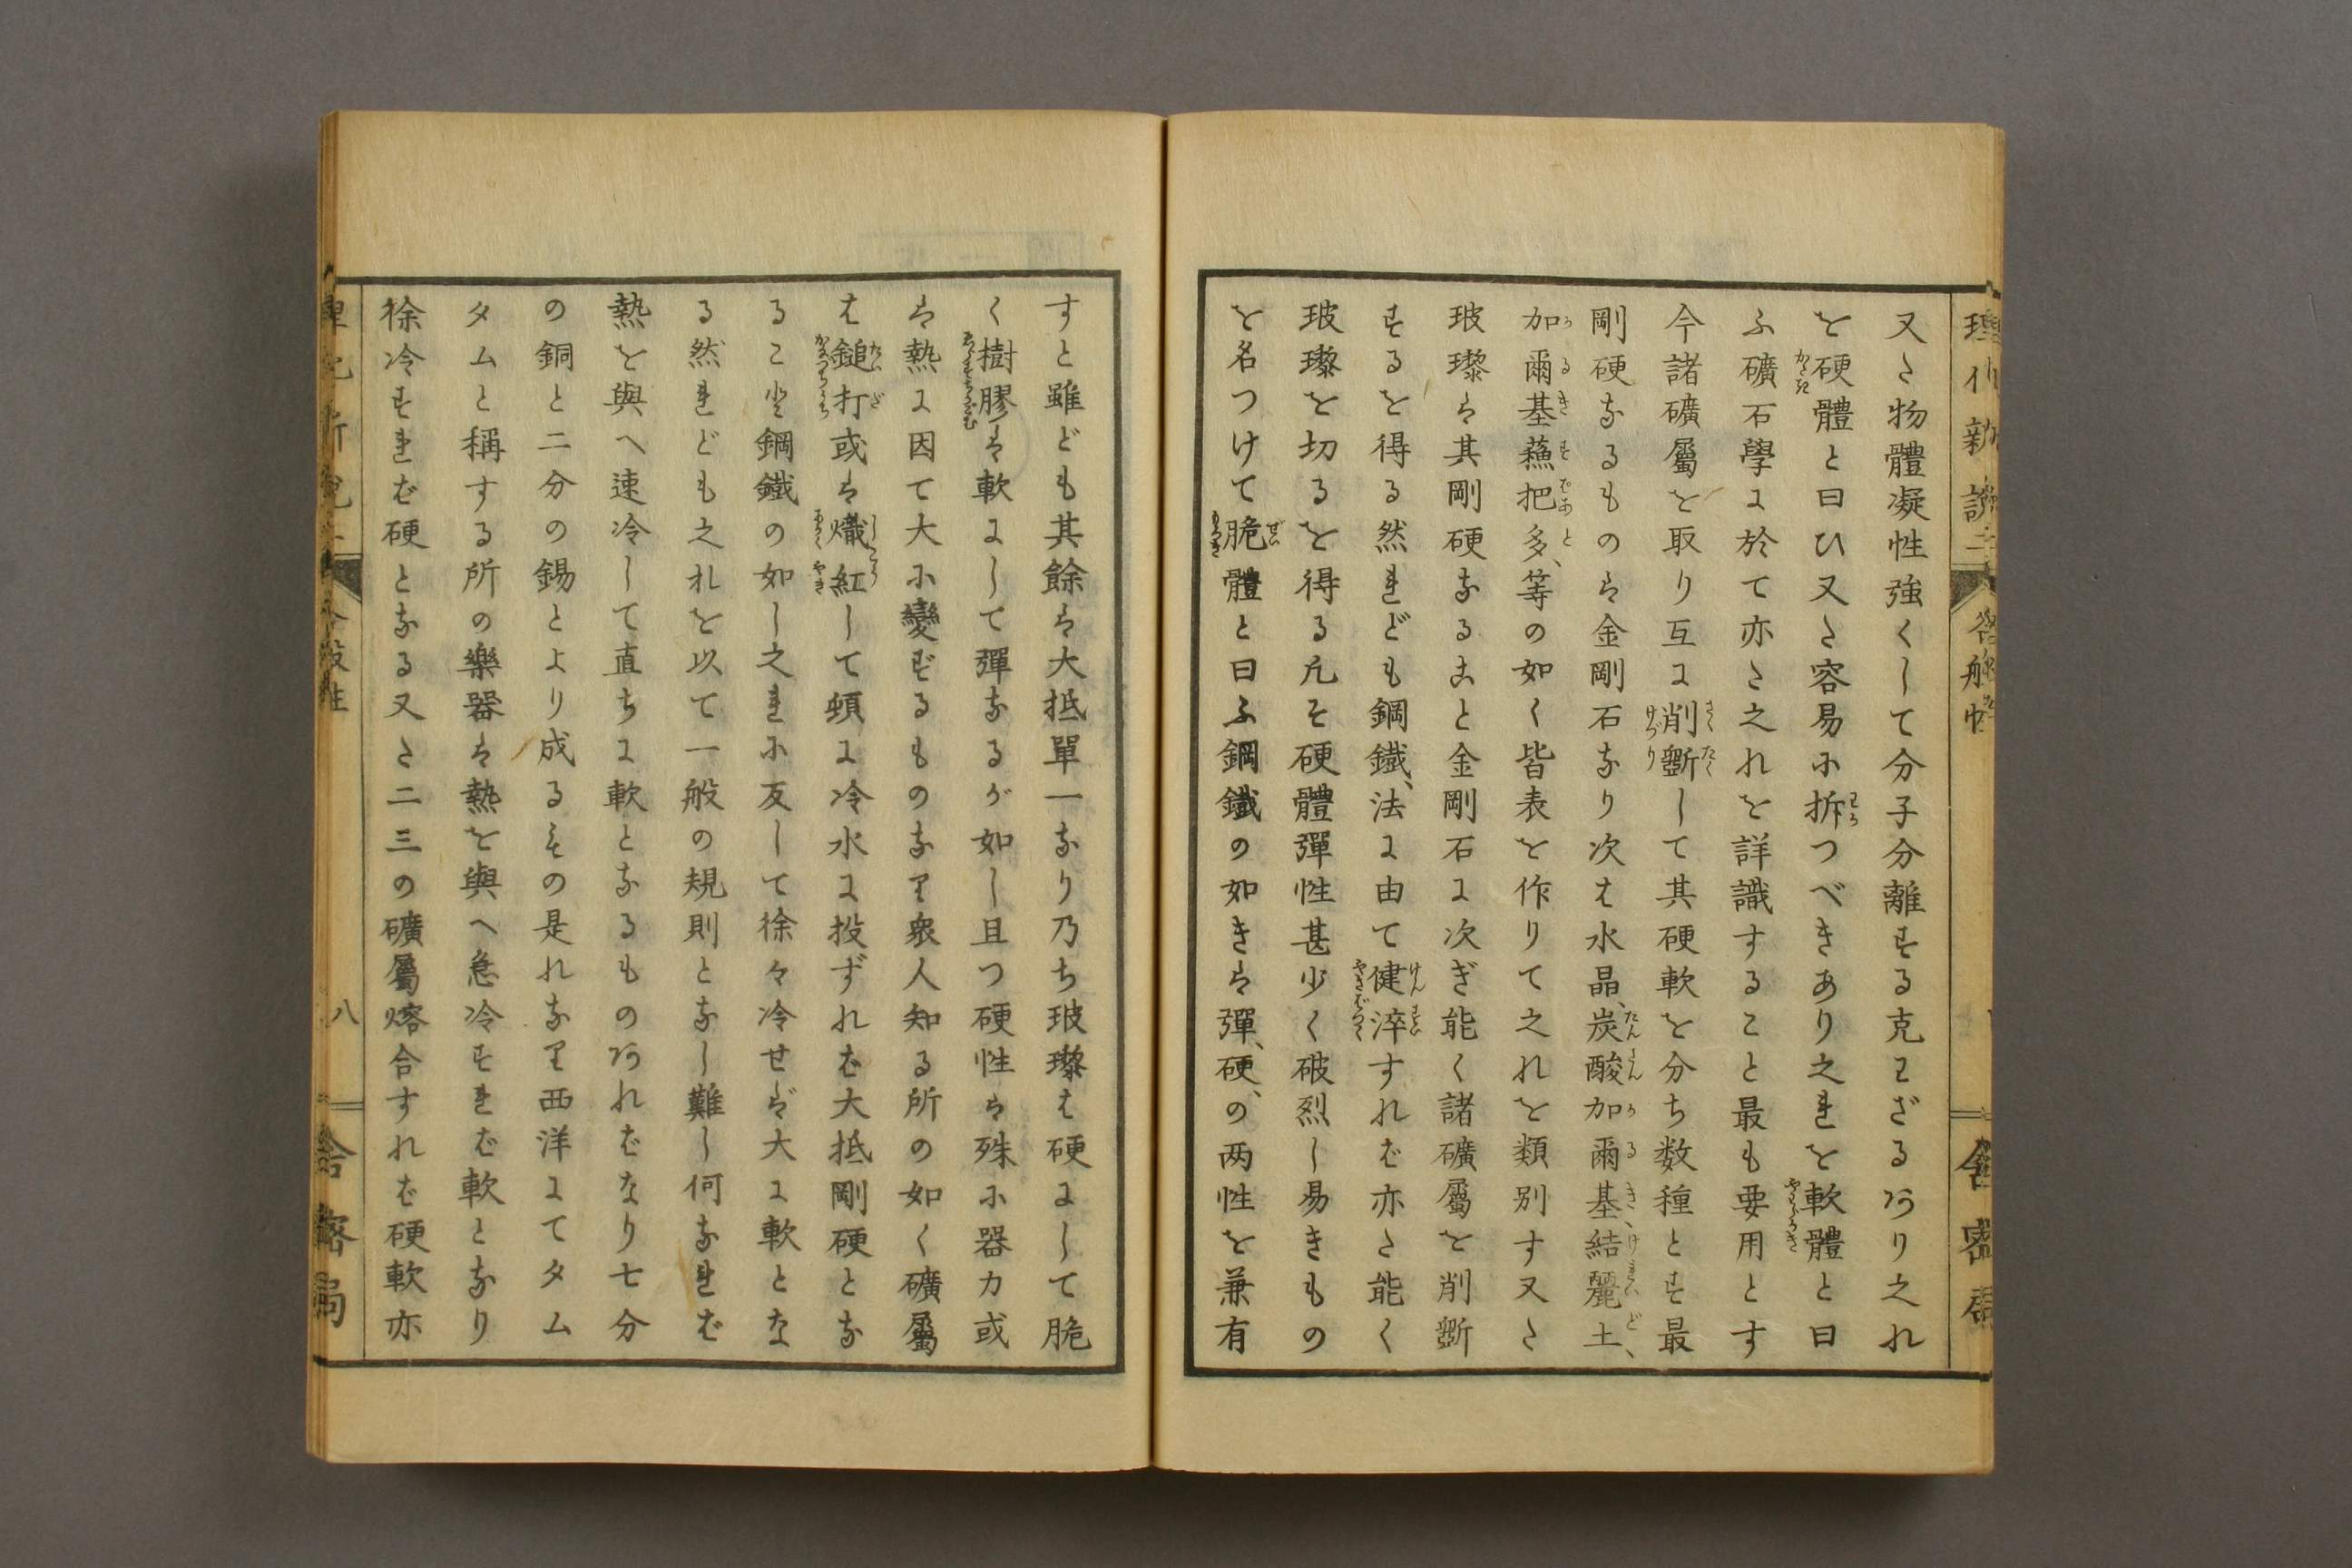 又た物體凝性強くして分子分離する克わざるあり之れ
を硬體と曰ひ又た容易に拆つべきあり之れを軟體と曰
ふ礦石學に於て亦た之れを詳識すること最も要用とす
今諸礦屬を取り互に削斲して其硬軟を分ち数種とす最
剛硬なるものは金剛石なり次は水晶、炭酸加爾基、結麗土、
加爾基蘓把多、等の如く皆表を作りて之れを類別す又た
玻瓈は其剛硬なること金剛石に次ぎ能く諸礦屬を削斲
するを得る然れども鋼鐵、法に由て健淬すれば亦た能く
玻瓈を切るを得る凡そ硬體彈性甚少く破烈し易きもの
を名つけて脆體と曰ふ鋼鐵の如きは彈、硬、の两性を兼有
すと雖ども其餘は大抵單一なり乃ち玻瓈は硬にして脆
く樹膠は軟にして彈なるが如し且つ硬性は殊に器力或
は熱に因て大に變ずるものなり衆人知る所の如く礦屬
は鎚打或は熾紅して頓に冷水に投ずれば大抵剛硬とな
ること鋼鐵の如し之れに反して徐々冷せば大に軟とな
る然れども之れを以て一般の規則となし難し何なれば
熱を與へ速冷して直ちに軟となるものあればなり七分
の銅と二分の錫とより成るもの是れなり西洋にてタム
タムと稱する所の樂器は熱を與へ急冷すれば軟となり
徐冷すれば硬となる又た二三の礦屬熔合すれば硬軟亦
八